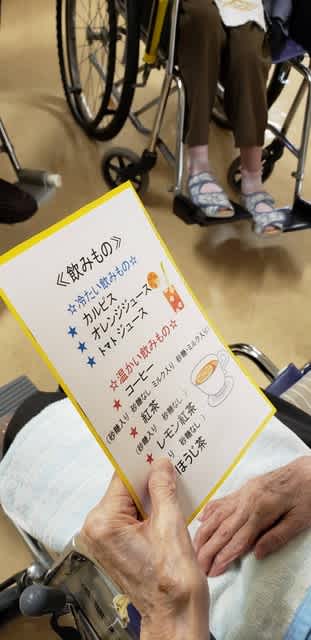 ≪飲みもの≫
☆冷たい飲みもの☆
カルピス
★ オレンジジュース
★ トマトジュース
★
☆温かい飲みもの☆
★ コーヒー
(砂糖入り 砂糖なし ミルク入り 砂糖・ミルク入り)
★ 紅茶
(砂糖入り 砂糖なし)
★ レモン紅茶
り 砂糖なし)
ほうじ茶